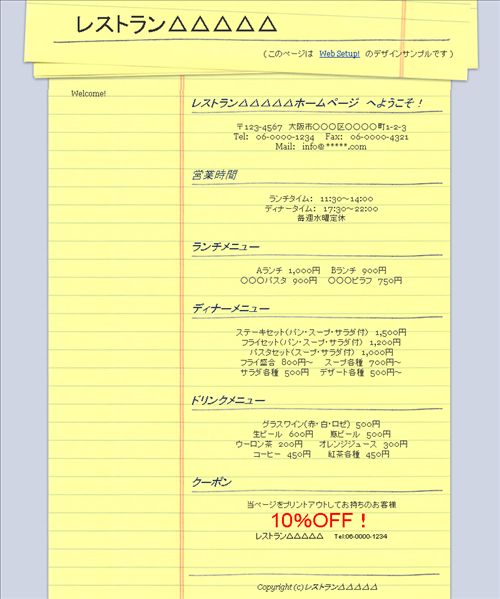 レストラン△△△△△
(このページは Web Setup! のデザインサンプルです)
Welcome!
レストラン△△△△△ホームページ へようこそ！
〒123-4567 大阪市○○○区○○○○町1-2-3
Tel: 06-0000-1234 Fax: 06-0000-4321
Mail: info@*****.com
営業時間
ランチタイム: 11:30～14:00
ディナータイム: 17:30～22:00
毎週水曜定休
ランチメニュー
Aランチ 1,000円 Bランチ 900円
○○○パスタ 900円 ○○○ピラフ 750円
ディナーメニュー
ステーキセット(パン・スープ・サラダ付) 1,500円
フライセット(パン・スープ・サラダ付) 1,200円
パスタセット(スープ・サラダ付) 1,000円
フライ盛合 800円～ スープ各種 700円～
サラダ各種 500円 デザート各種 500円～
ドリンクメニュー
グラスワイン(赤・白・ロゼ) 500円
生ビール 600円 瓶ビール 500円
ウーロン茶 200円 オレンジジュース 300円
コーヒー 450円 紅茶各種 450円
クーポン
当ページをプリントアウトしてお持ちのお客様
10%OFF！
レストラン△△△△△ Tel:06-0000-1234
Copyright (c)レストラン△△△△△